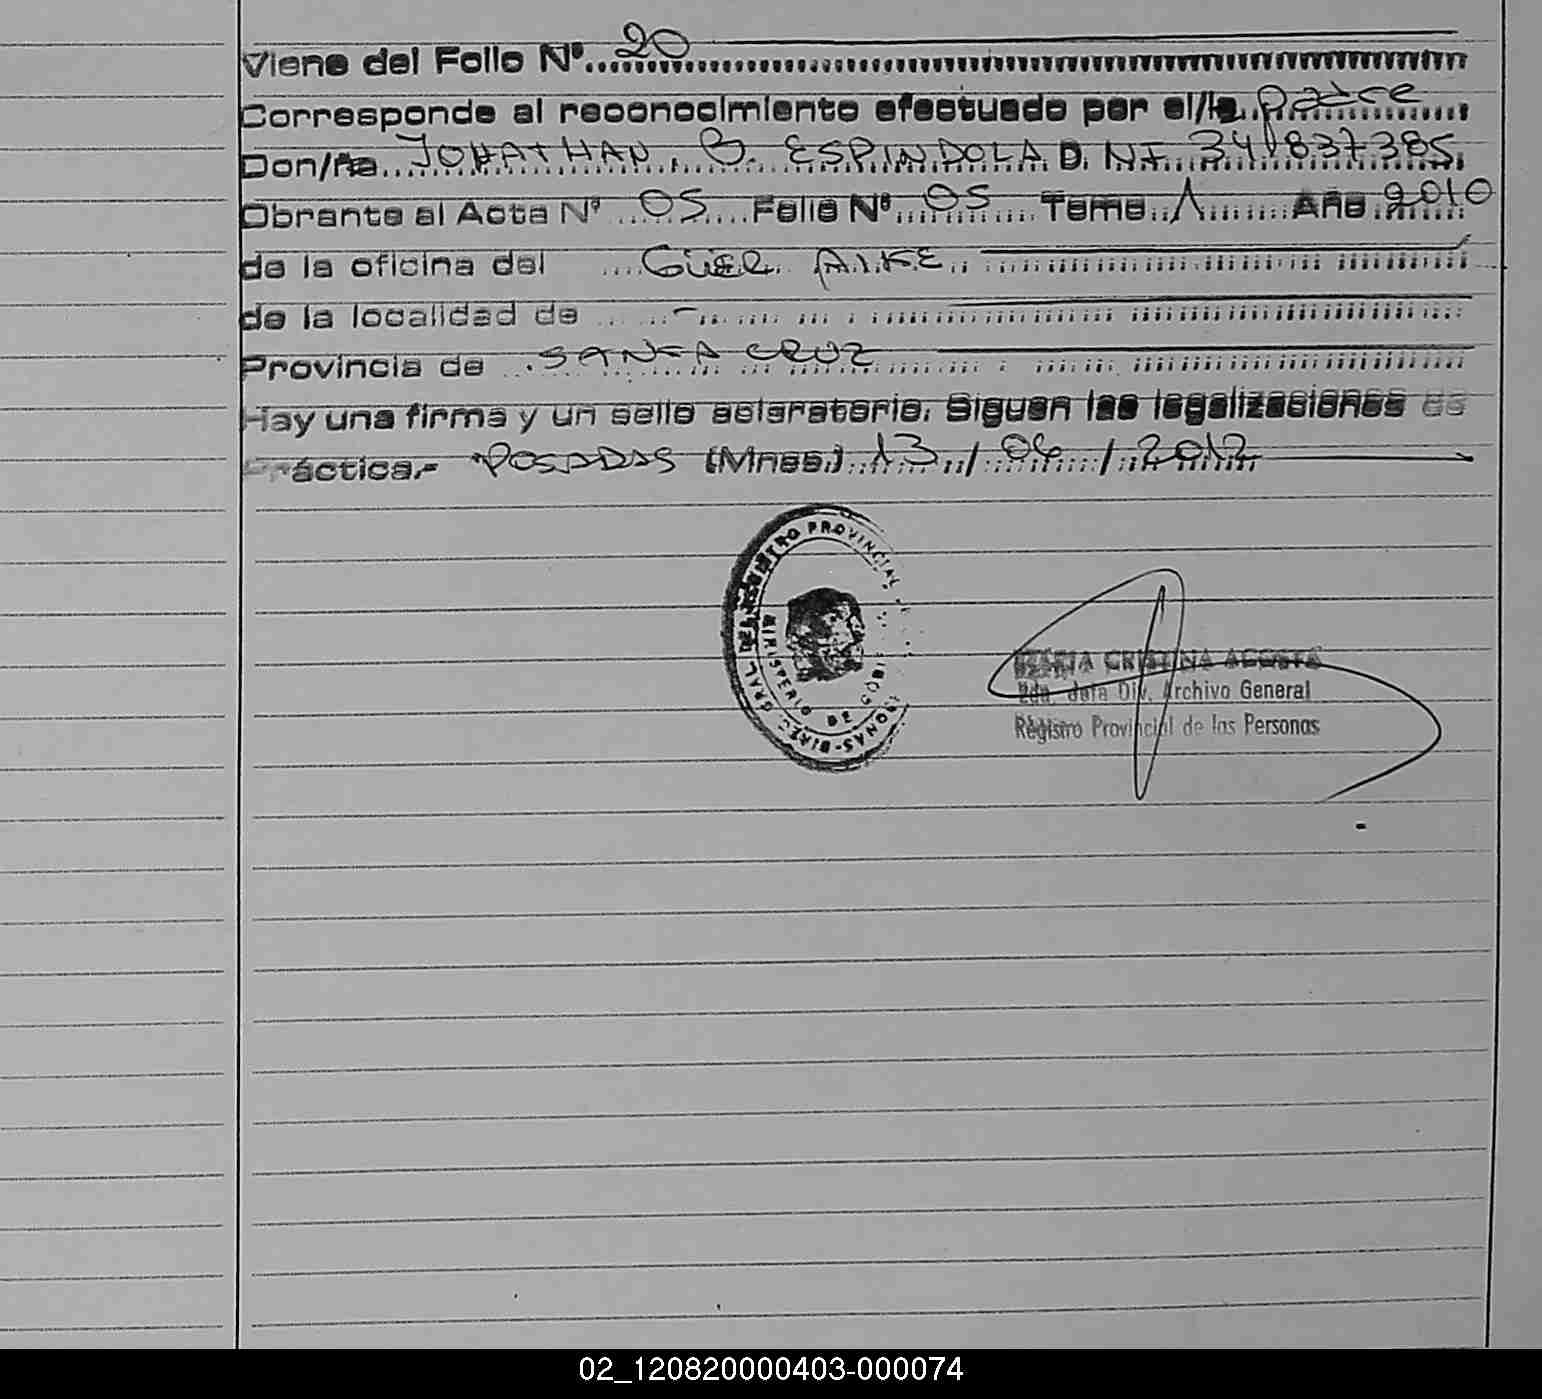 Viene del Folio Nº 20
Corresponde al reconocimiento efectuado por el/la padre
Don/ña JONATHAN B. ESPINDOLA D.N.I. 34.837.385
Obrante al Acta Nº 05 Folio Nº 05 Tomo 1 Año 2010
de la oficina del GÜER AIKE
de la localidad de -
Provincia de SANTA CRUZ
Hay una firma y un sello aclaratorio. Siguen las legalizaciones de
Práctica.- POSADAS (Mnes.) 13 / 04 / 2012
REGISTRO PROVINCIAL DE
MINISTERIO DE
MARIA CRISTINA ACOSTA
Jefa Div. Archivo General
Registro Provincial de las Personas
02_120820000403-000074